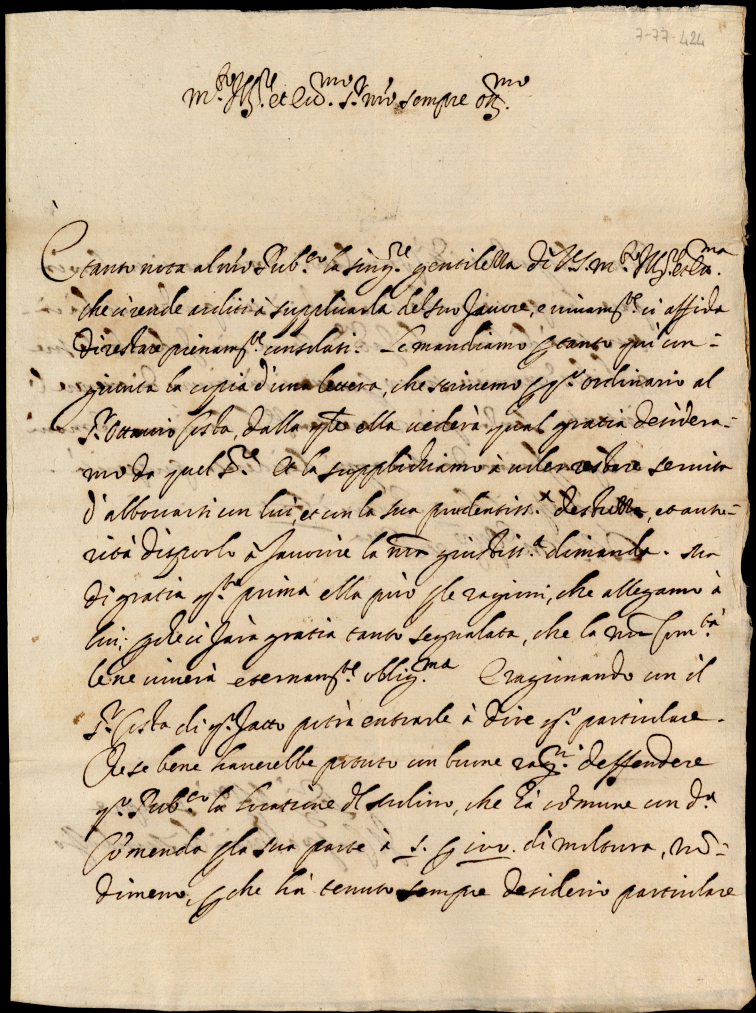 7-77-424
m.to Ill.re et Ecc.mo S.r n'ro sempre oss.mo
È tanto nota al n'ro Pub.co la sing.re gentilezza di V.S. m.to Ill.re et Ecc.ma
che ci rende arditi à supplicarla del suo favore, e vivam.te ci affida
di restare pienam.te consolati. Le mandiamo p tanto quì con-
giunta la copia d'una lettera, che scrivemo p q.o ordinario al
S.r Ottavio Costa, dalla q'le ella vederà, qual gratia desidera-
mo da quel S.re Et la supplichiamo à voler restare servita
d'abboccarsi con lui, et con la sua prudentiss.a destrezza, et auto-
rità disporlo à favorire la n'ra giustiss.a dimanda. Ma
di gratia q.to prima ella può p le ragioni, che allegamo à
lui; p che ci farà gratia tanto segnalata, che la n'ra Com.tà
le ne viverà eternam.te oblig.ma E ragionando con il
S.r Costa di q.o fatto potrà entrarle à dire q.o particulare.
Che se bene haverebbe potuto con buone rag.ni deffendere
q.o Pub.co la locatione del molino, che hà comune con d.a
Comenda p la sua parte à s. p di moltura, nō-
dimeno, p che hà tenuto sempre desiderio particulare